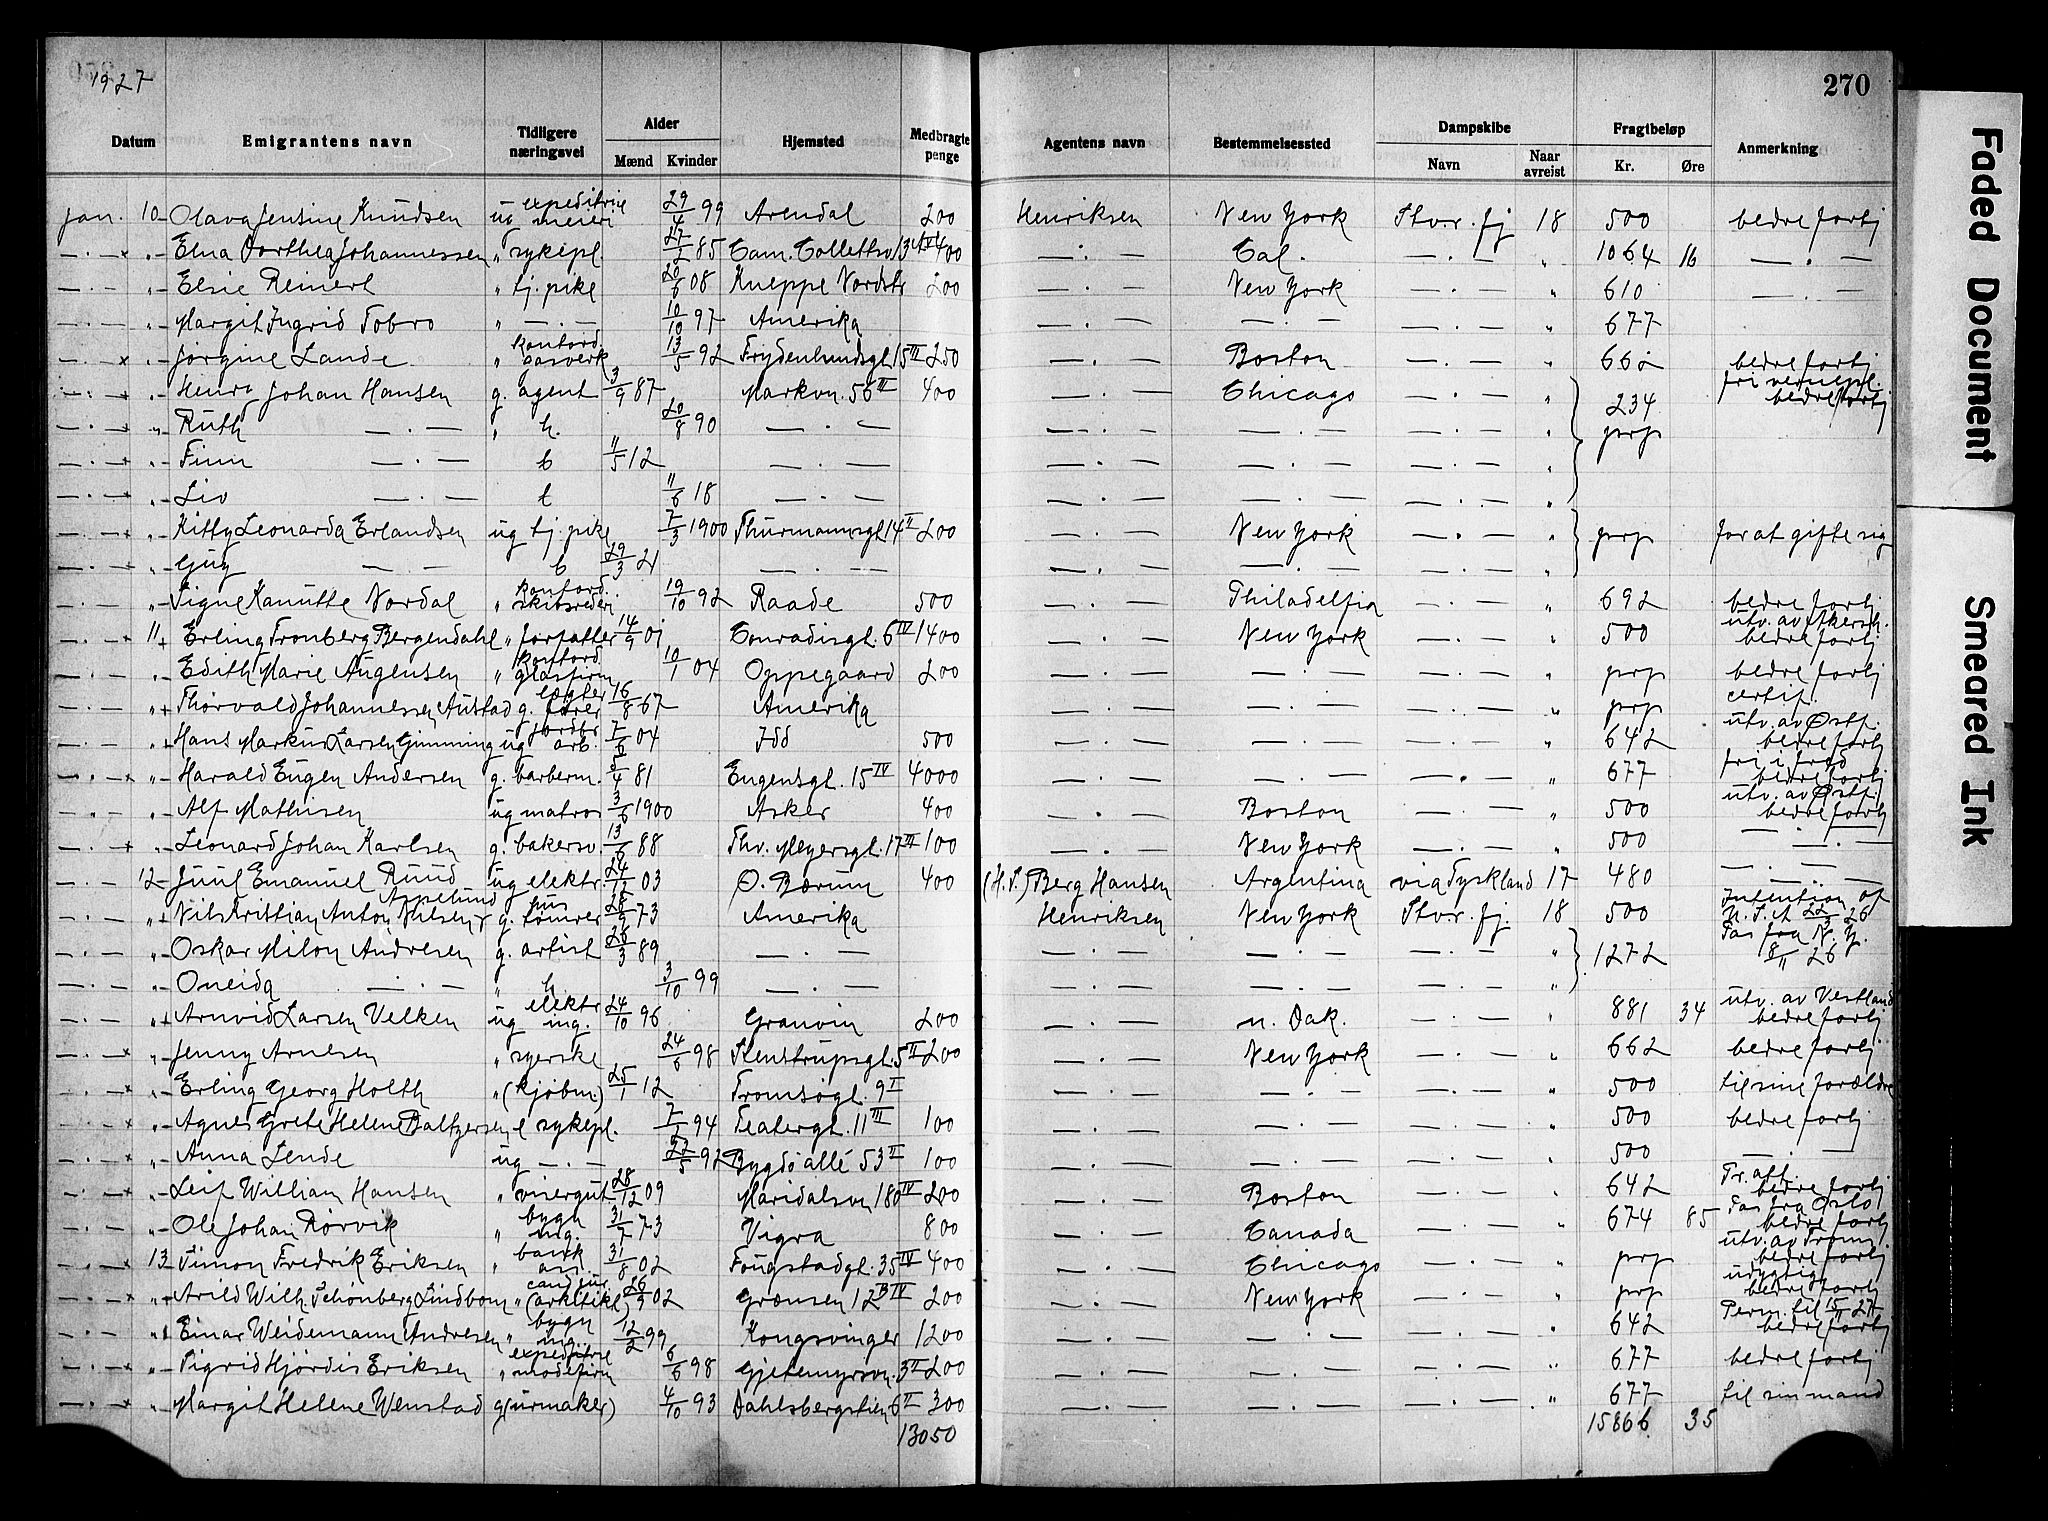 1927
270
Datum Emigrantens navn Tidligere næringsvei Alder Mænd Kvinder Hjemsted Medbragte penge Agentens navn Bestemmelsessted Dampskibe Navn Naar avreist Fragtbeløp Kr. Øre Anmerkning
Jan. 10 Olava Jensine Knudsen ug expeditrice meieri 29/4 99 Arendal 200 Henriksen New York Stvr. fj 18 500 bedre fortj
— . — " Elna Dorthea Johannessen " sykepl. 27/2 85 Cam. Collettsv. 13 400 — . — Cal. — . — " 1064 16 — . —
" Elsie Reinert " tj. pike 20/6 08 Kneppe Nordstr 200 — . — New York — . — " 610 — . —
" Margit Ingrid Tobro " — . — 10/10 97 Amerika — . — — . — — . — " 677
— . — " Jørgine Lande " kontord. gasverk 13/5 92 Frydenlundsgt. 15 III 250 — . — Boston — . — " 662 bedre fortj
— . — " Henry Johan Hansen g. agent 3/9 87 Markvn. 56 III 400 — . — Chicago — . — " 234 fri vernepl. bedre fortj
— . — " Ruth — . — " h. 20/8 90 — . — — . — — . — — . — " prp
— . — " Finn — . — b 11/5 12 — . — — . — — . — — . — "
— . — " Liv — . — b 11/6 18 — . — — . — — . — — . — "
— . — " Kitty Leonarda Erlandsen ug tj. pike 7/3 1900 Thurmannsgt 14 II 200 — . — New York — . — " prp for at gifte sig
— . — " Guy — — b 29/3 21 — . — — . — — . — — . — "
— . — " Signe Kanutte Nordal " kontord. skibsrederi 19/10 92 Raade 500 — . — Philadelfia — . — " 692 bedre fortj
— . — 11 Erling Tronberg Bergendahl " forfatter 14/9 01 Conradisgt. 6 IV 1400 — . — New York — . — " 500 utv. av Akersh. bedre fortj
— . — " Edith Marie Augensen " kontord glasfirm 10/1 04 Oppegaard 200 — . — — . — — . — " prp bedre fortj
— . — " Thorvald Johannessen Austad g. lægter fører 16/8 67 Amerika — . — — . — — . — " prp certif.
— . — " Hans Markus Larsen Gimming ug jordbr arb. 7/6 04 Idd 500 — . — — . — — . — " 642 utv. av Østf. bedre fortj
— . — " Harald Eugen Andersen g. barberm. 5/4 81 Eugensgt. 15 IV 4000 — . — — . — — . — " 677 fri i fred bedre fortj
— . — " Alf Mathisen ug matros 3/6 1900 Asker 400 — . — Boston — . — " 500 utv. av Østf. bedre fortj
— . — " Leonard Johan Karlsen g. bakersv. 13/6 88 Thv. Meyersgt. 17 III 100 — . — New York — . — " 500 — . —
— . — 12 Juul Emanuel Ruud ug elektr. 24/12 03 Ø. Bærum 400 (H.P.) Berg Hansen Argentina via Tyskland 17 480 — . —
— . — " Nils Kristian Anton Nilsen Appelund g. hus tømrer 28/9 73 Amerika Henriksen New York Stvr. fj. 18 500 Intention of U.S.A 22/2 26
— . — " Oskar Milon Andresen g. artist 26/3 89 — . — — . — — . — — . — " 1272 Pas fra N.Y. 8/11 26
— . — " Oneida — . — " h. 3/10 99 — . — — . — — . — — . — "
— . — " Arnvid Larsen Velken ug elektr ing. 24/10 96 Granvin 200 — . — n. Dak. — . — " 881 34 utv. av Vestland bedre fortj
— . — " Jenny Arnesen " syerske 24/6 98 Stenstrupsgt. 5 II 200 — . — New York — . — " 662 bedre fortj
— . — " Erling Georg Holth " (kjøbm.) 25/1 12 Tromsøgt. 9 I — . — — . — — . — " 500 til sine forældre
— . — " Agnes Grete Helene Baltzersen e sykepl. 7/5 94 Teatergt. 11 III 100 — . — — . — — . — " 500 bedre fortj
— . — " Anna Lende ug — . — 22/5 92 Bygdø allé 53 II 100 — . — — . — — . — " 500 — . —
— . — " Leif William Hansen " visergut 28/12 09 Maridalsvn 180 IV 200 — . — Boston — . — " 642 Fr. att. bedre fortj
— . — " Ole Johan Rørvik " bygn ing. 31/7 73 Vigra 800 — . — Canada — . — " 674 85 Pas fra Oslo bedre fortj
— . — 13 Simon Fredrik Eriksen " bank ass. 31/8 02 Fougstadgt. 35 IV 400 — . — Chicago — . — " prp utv. av Troms. bedre fortj
— . — " Arild Wilh. Schønberg Lindbom " cand jur. (arkitekt) 26/9 02 Grænsen 12 B IV 200 — . — New York — . — " prp udygtig bedre fortj
— . — " Einar Weidemann Andresen " bygn ing. 12/2 99 Kongsvinger 1200 — . — — . — — . — " 642 Perm. til 15/11 27 bedre fortj
— . — " Sigrid Hjördis Eriksen " expeditrice modefirm 6/6 98 Gjetemyrsvn. 3 II 200 — . — — . — — . — " 677 bedre fortj
— . — " Margit Helene Wenstad g (urmaker) 4/10 93 Dahlsbergstien 6 II 300 — . — — . — — . — " 677 til sin mand
13050 15866 35
Faded Document
Smeared Ink